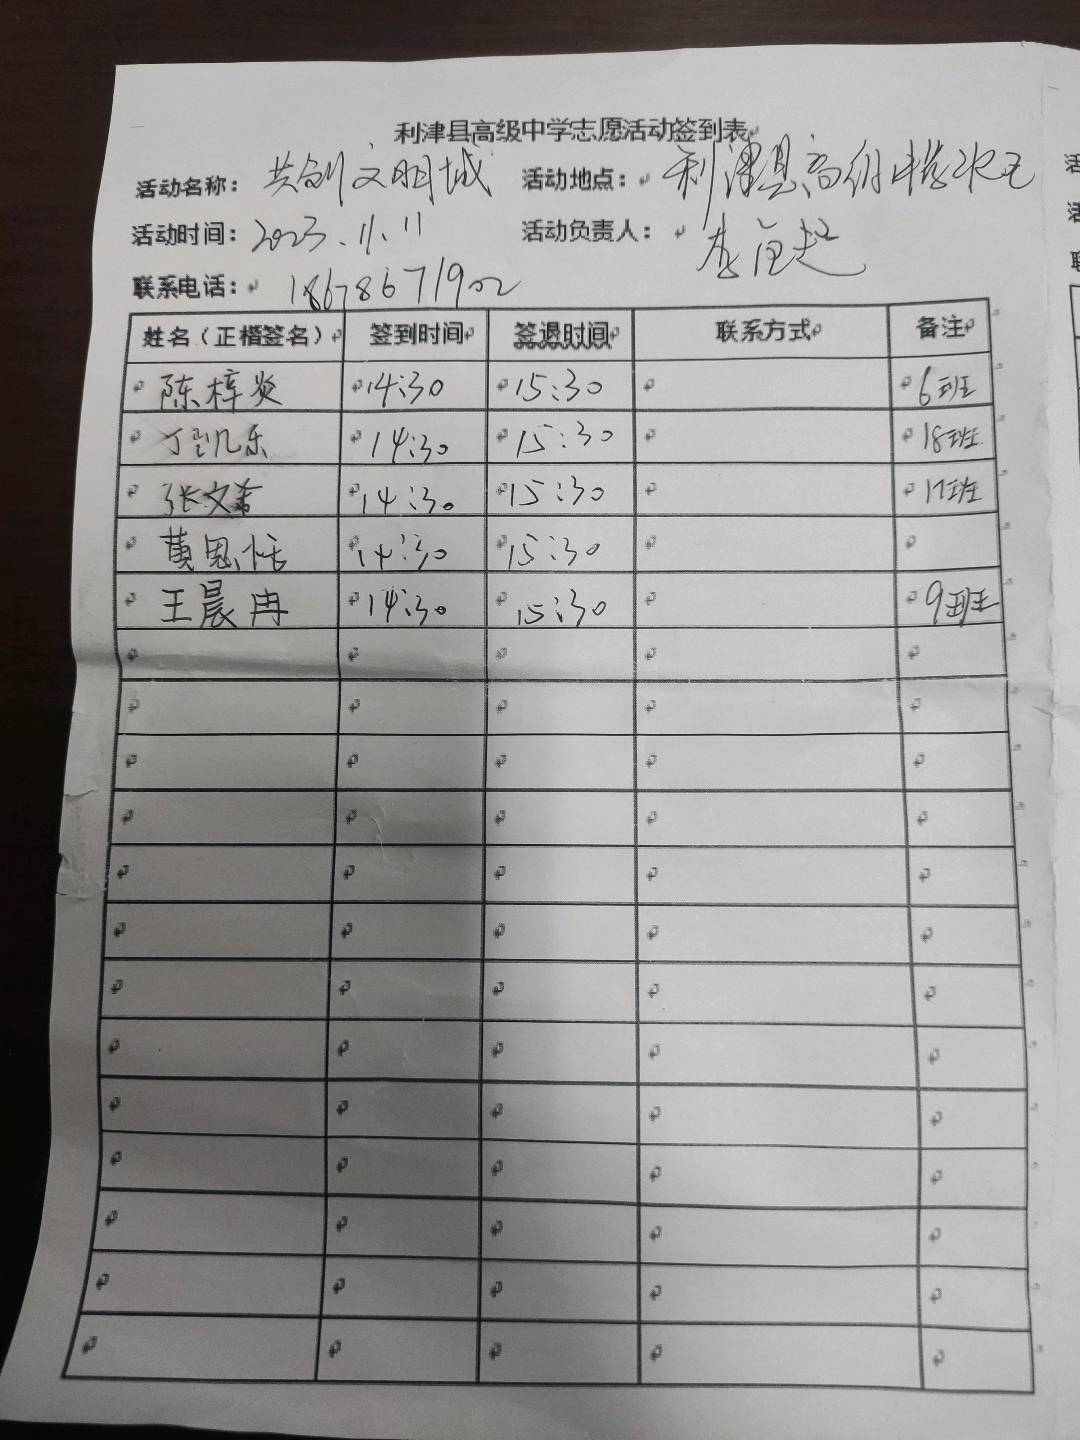 利津县高级中学志愿活动签到表
活动名称： 共创文明城 活动地点： 利津县高级中学
活动时间： 2023.11.11 活动负责人： 李
联系电话： 18678671902
姓名（正楷签名） 签到时间 签退时间 联系方式 备注
陈梓炎 14:30 15:30 6班
丁凯乐 14:30 15:30 18班
张文希 14:30 15:30 17班
黄思恬 14:30 15:30
王晨冉 14:30 15:30 9班